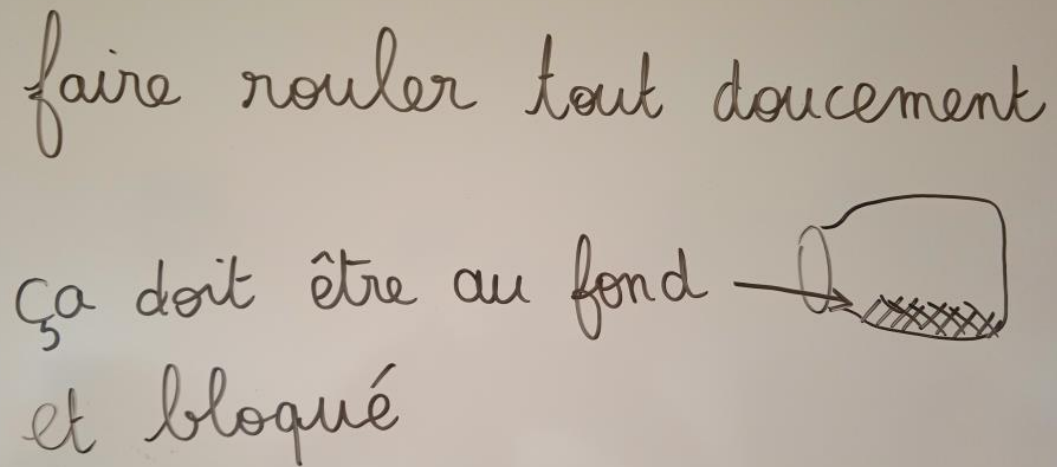 faire rouler tout doucement
ça doit être au fond
et bloqué